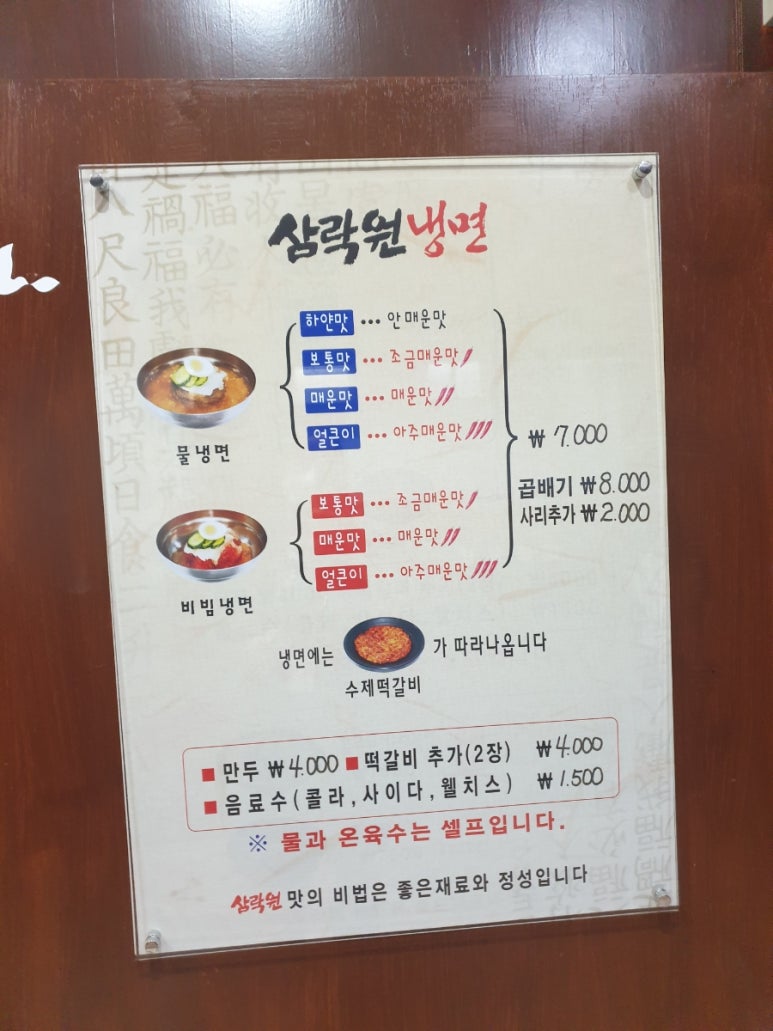 삼락원냉면
하얀맛 ••• 안매운맛
보통맛 ••• 조금매운맛
매운맛 ••• 매운맛
얼큰이 ••• 아주매운맛
물냉면
₩ 7.000
곱배기 ₩8.000
사리추가 ₩2.000
보통맛 ••• 조금매운맛
매운맛 ••• 매운맛
얼큰이 ••• 아주매운맛
비빔냉면
냉면에는 가 따라나옵니다
수제떡갈비
■ 만두 ₩4.000 ■ 떡갈비 추가(2장) ₩4.000
■ 음료수(콜라,사이다,웰치스) ₩1.500
※ 물과 온육수는 셀프입니다.
삼락원 맛의 비법은 좋은재료와 정성입니다